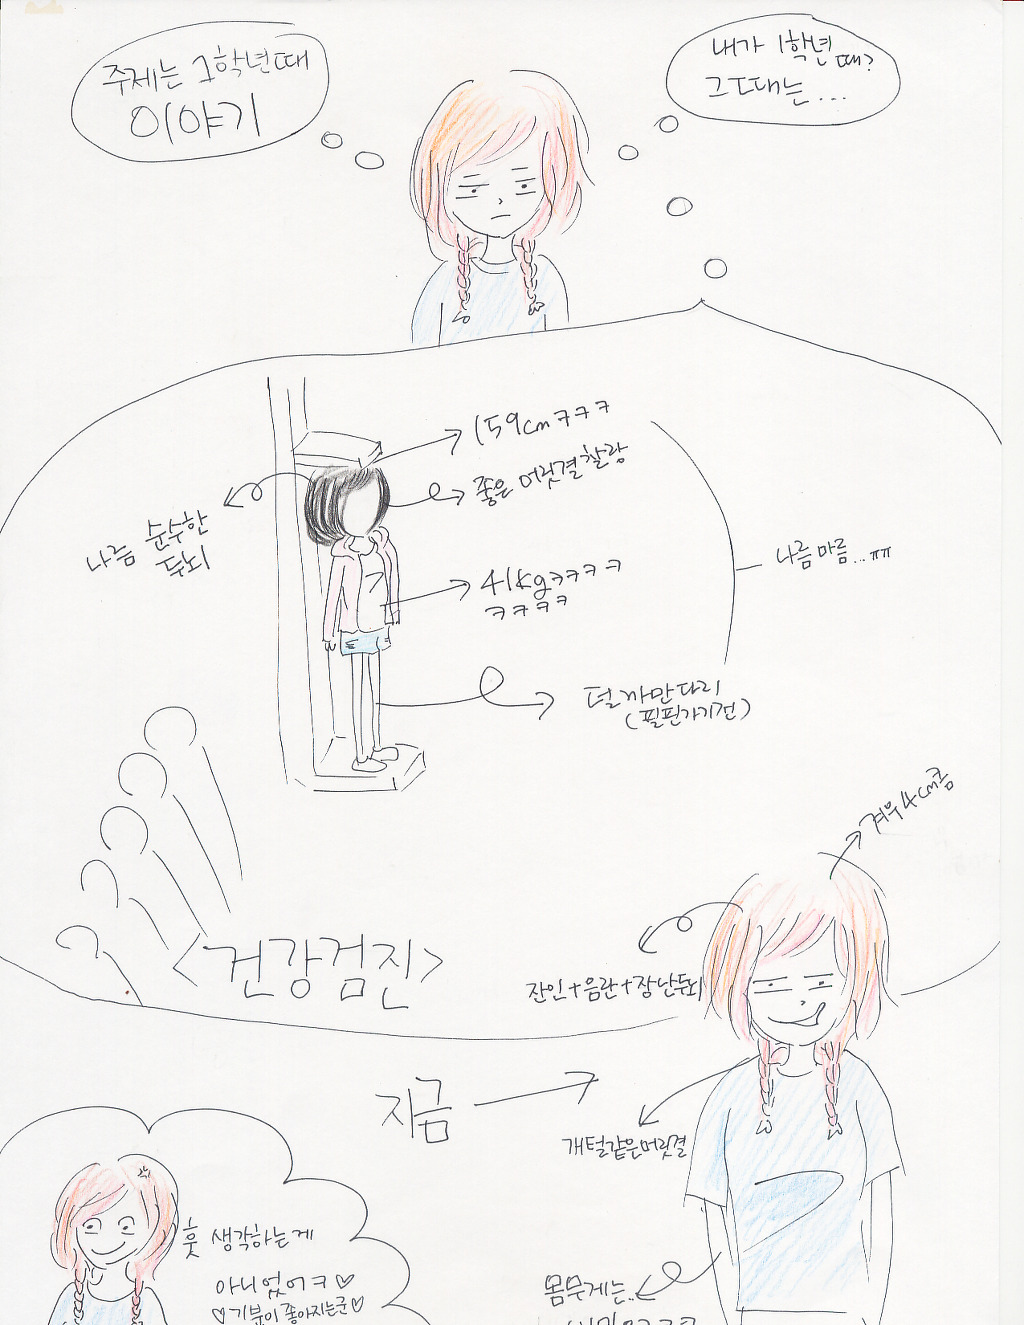 주제는 1학년때
이야기
내가 1학년때?
그때는...
159cm ㅋㅋㅋ
좋은 머릿결 찰랑
나름 순수한
두뇌
41kg ㅋㅋㅋㅋ
ㅋㅋㅋㅋ
나름 마름...ㅠㅠ
털까만다리
(필핀가기전)
<건강검진>
겨우 4cm큼
잔인+음란+장난두뇌
지금
개털같은머릿결
훗 생각하는게
아니었어ㅋ♡
♡기분이 좋아지는군♡
몸무게는..